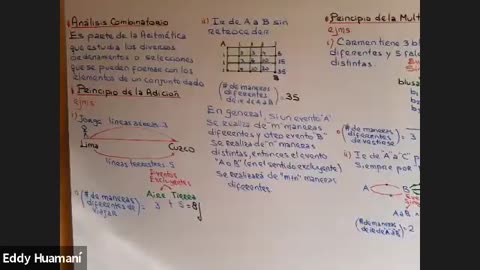 Análisis Combinatorio
Es parte de la Aritmética
que estudia los diversos
ordenamientos o selecciones
que se pueden formar con los
elementos de un conjunto dado
Principio de la Adición
ejms
i) Jorge líneas aéreas: 3
Lima
Cuzco
líneas terrestres: 5
Eventos
Excluyentes
Aire Tierra
(# de maneras
diferentes de
viajar) = 3 + 5 = 8
ii) Ir de A a B sin
retroceder
A
B
(# de maneras
diferentes
de ir de A a B) = 35
En general, si un evento "A"
se realiza de "m" maneras
diferentes y otro evento "B"
se realiza de "n" maneras
distintas, entonces el evento
"A o B" (en el sentido excluyente)
se realizará de "m+n" maneras
diferentes
Principio de la Mult
ejms
i) Carmen tiene 3 b
diferentes y 5
distintas.
blus
(# de maneras
diferentes
de vestirse
ii) Ir de "A" a "C" p
siempre por
A
B
A a B
(# de maneras
de ir de A a B) = 2
Eddy Huamaní